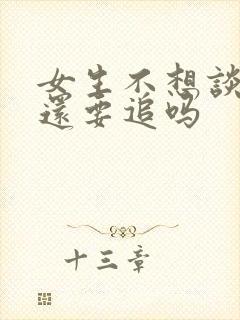 女生不想談
還要追吗
十三章